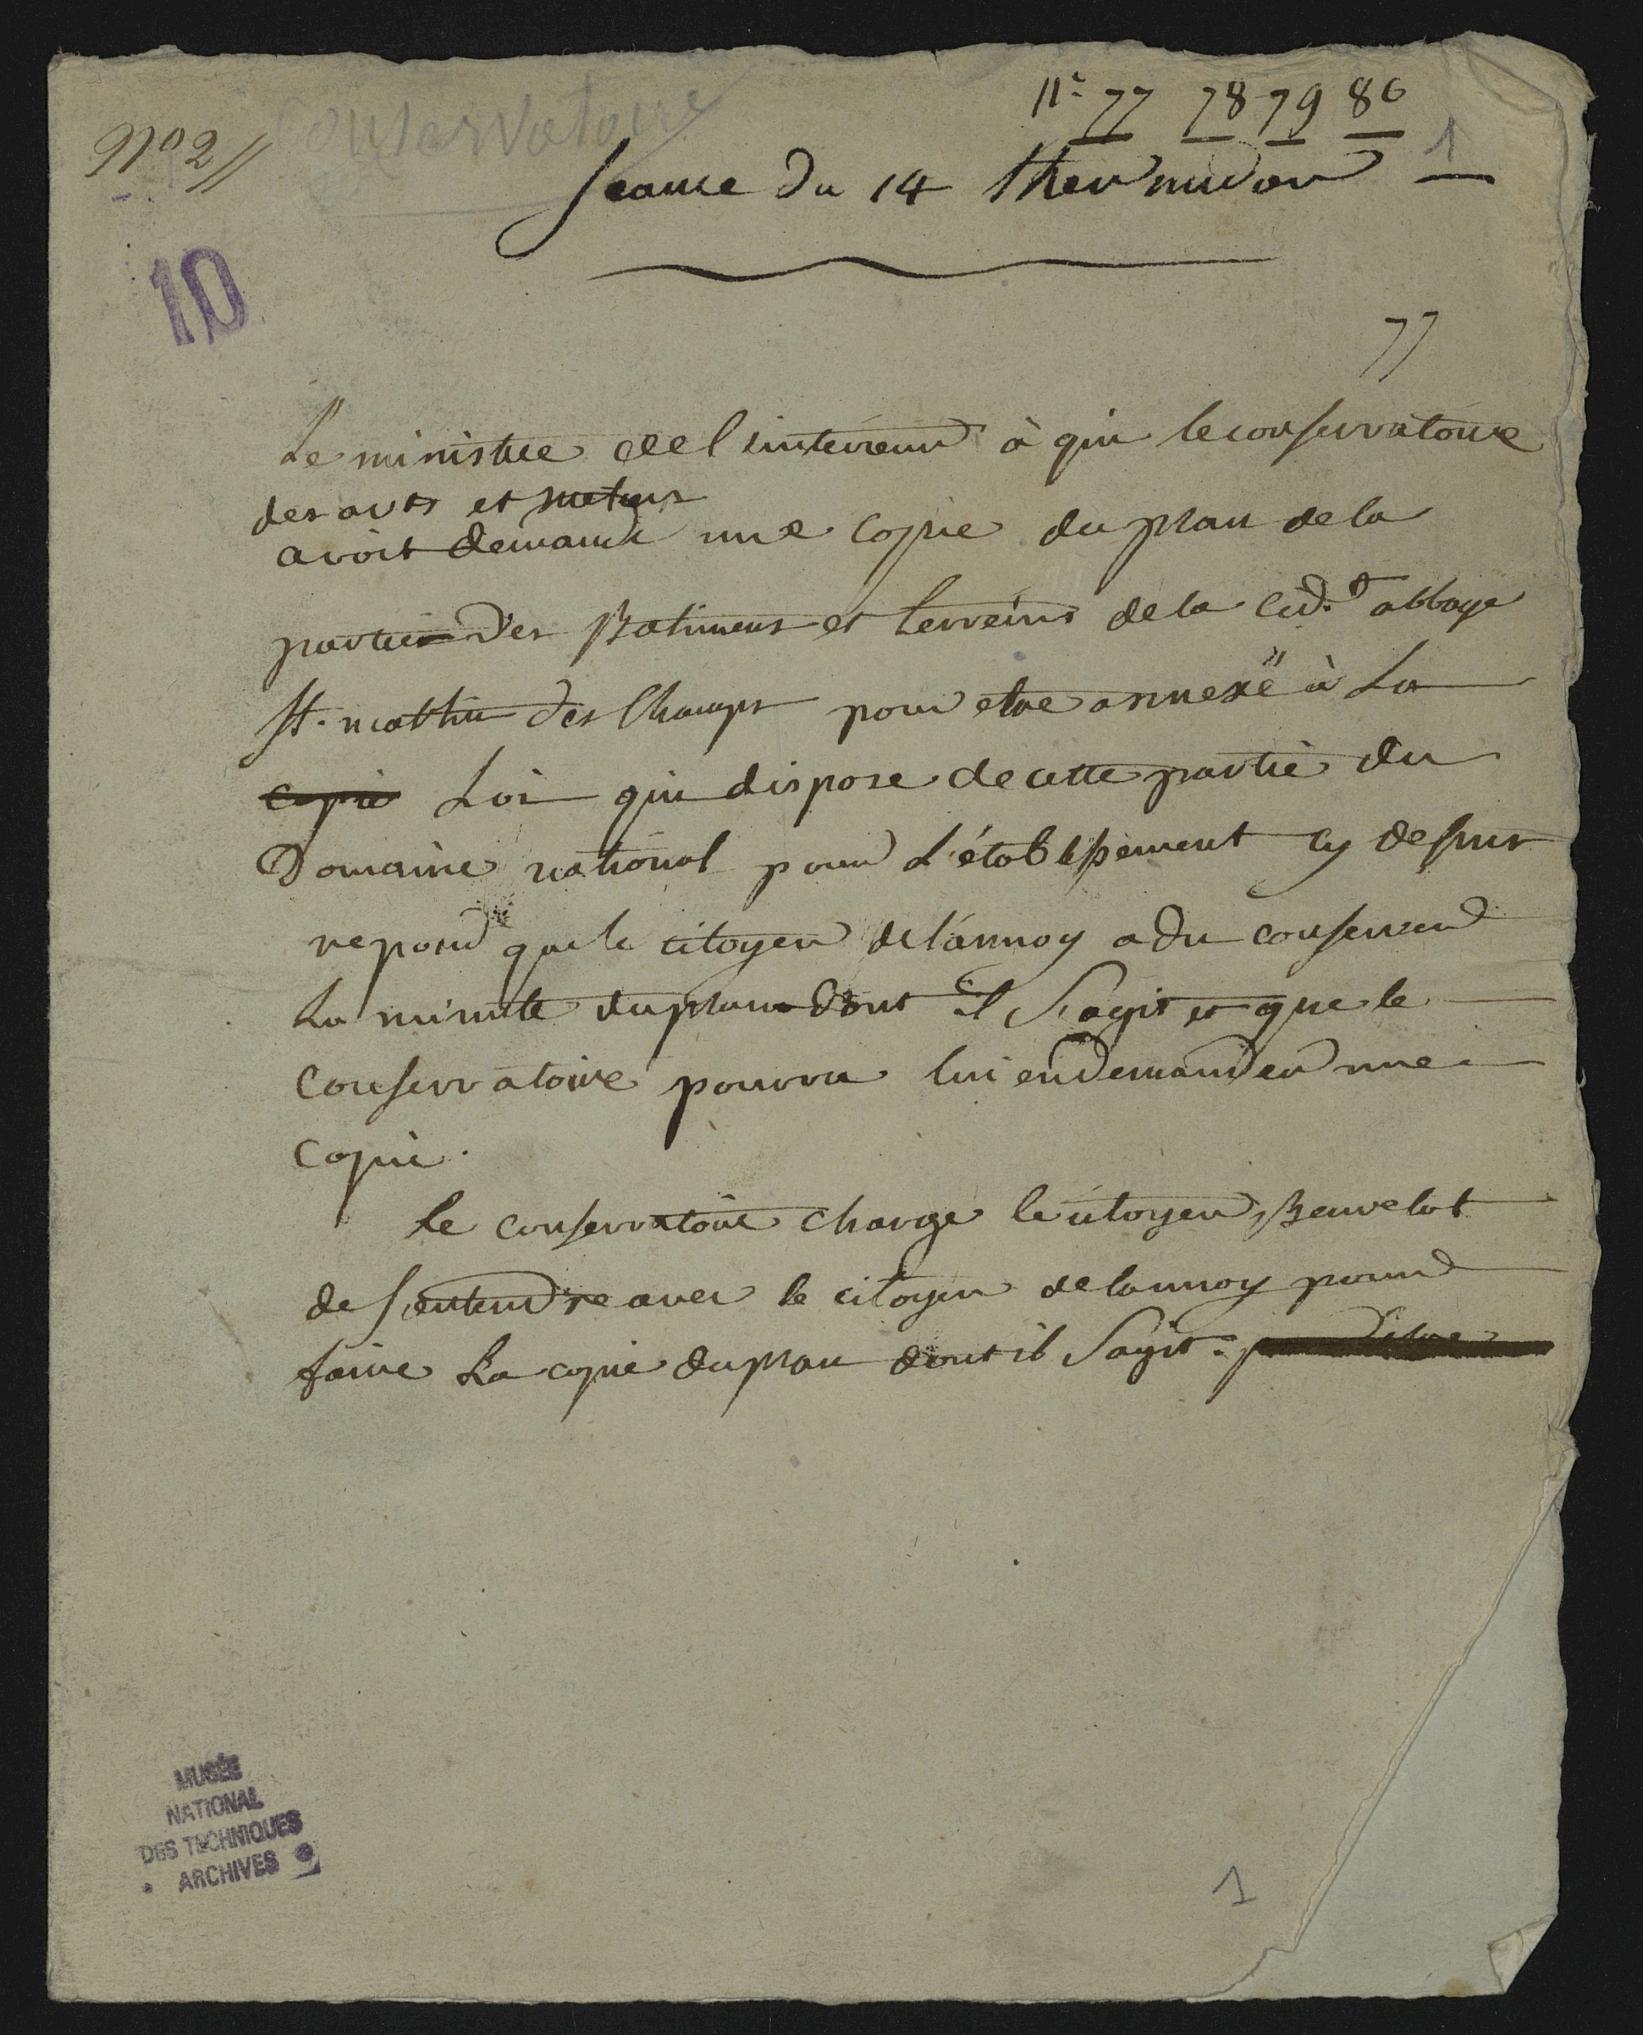 n° 77 78 79 80
N° 2 // Conservatoire
1
Seance du 14 thermidor
10
77
Le ministre de l interieur à qui le conservatoire
des arts et metiers
avoit demandé une copie du plan de la
partie des Batimens et terreins de la cid.t abbaye
St. mathin des Champs pour etre annexé à La
copie Loi qui dispose de cette partie du
Domaine national pour L'établissement cy dessus
repond que le citoyen delannoy a du conserver
La minute du plan dont il S'agit et que le
Conservatoire pourra lui en demander une
copie.
le conservatoire charge le citoyen Beuvelot
de S'entendre avec le citoyen delannoy pour
faire La copie du plan dont il Sagit.
MUSÉE
NATIONAL
DES TECHNIQUES
ARCHIVES
1